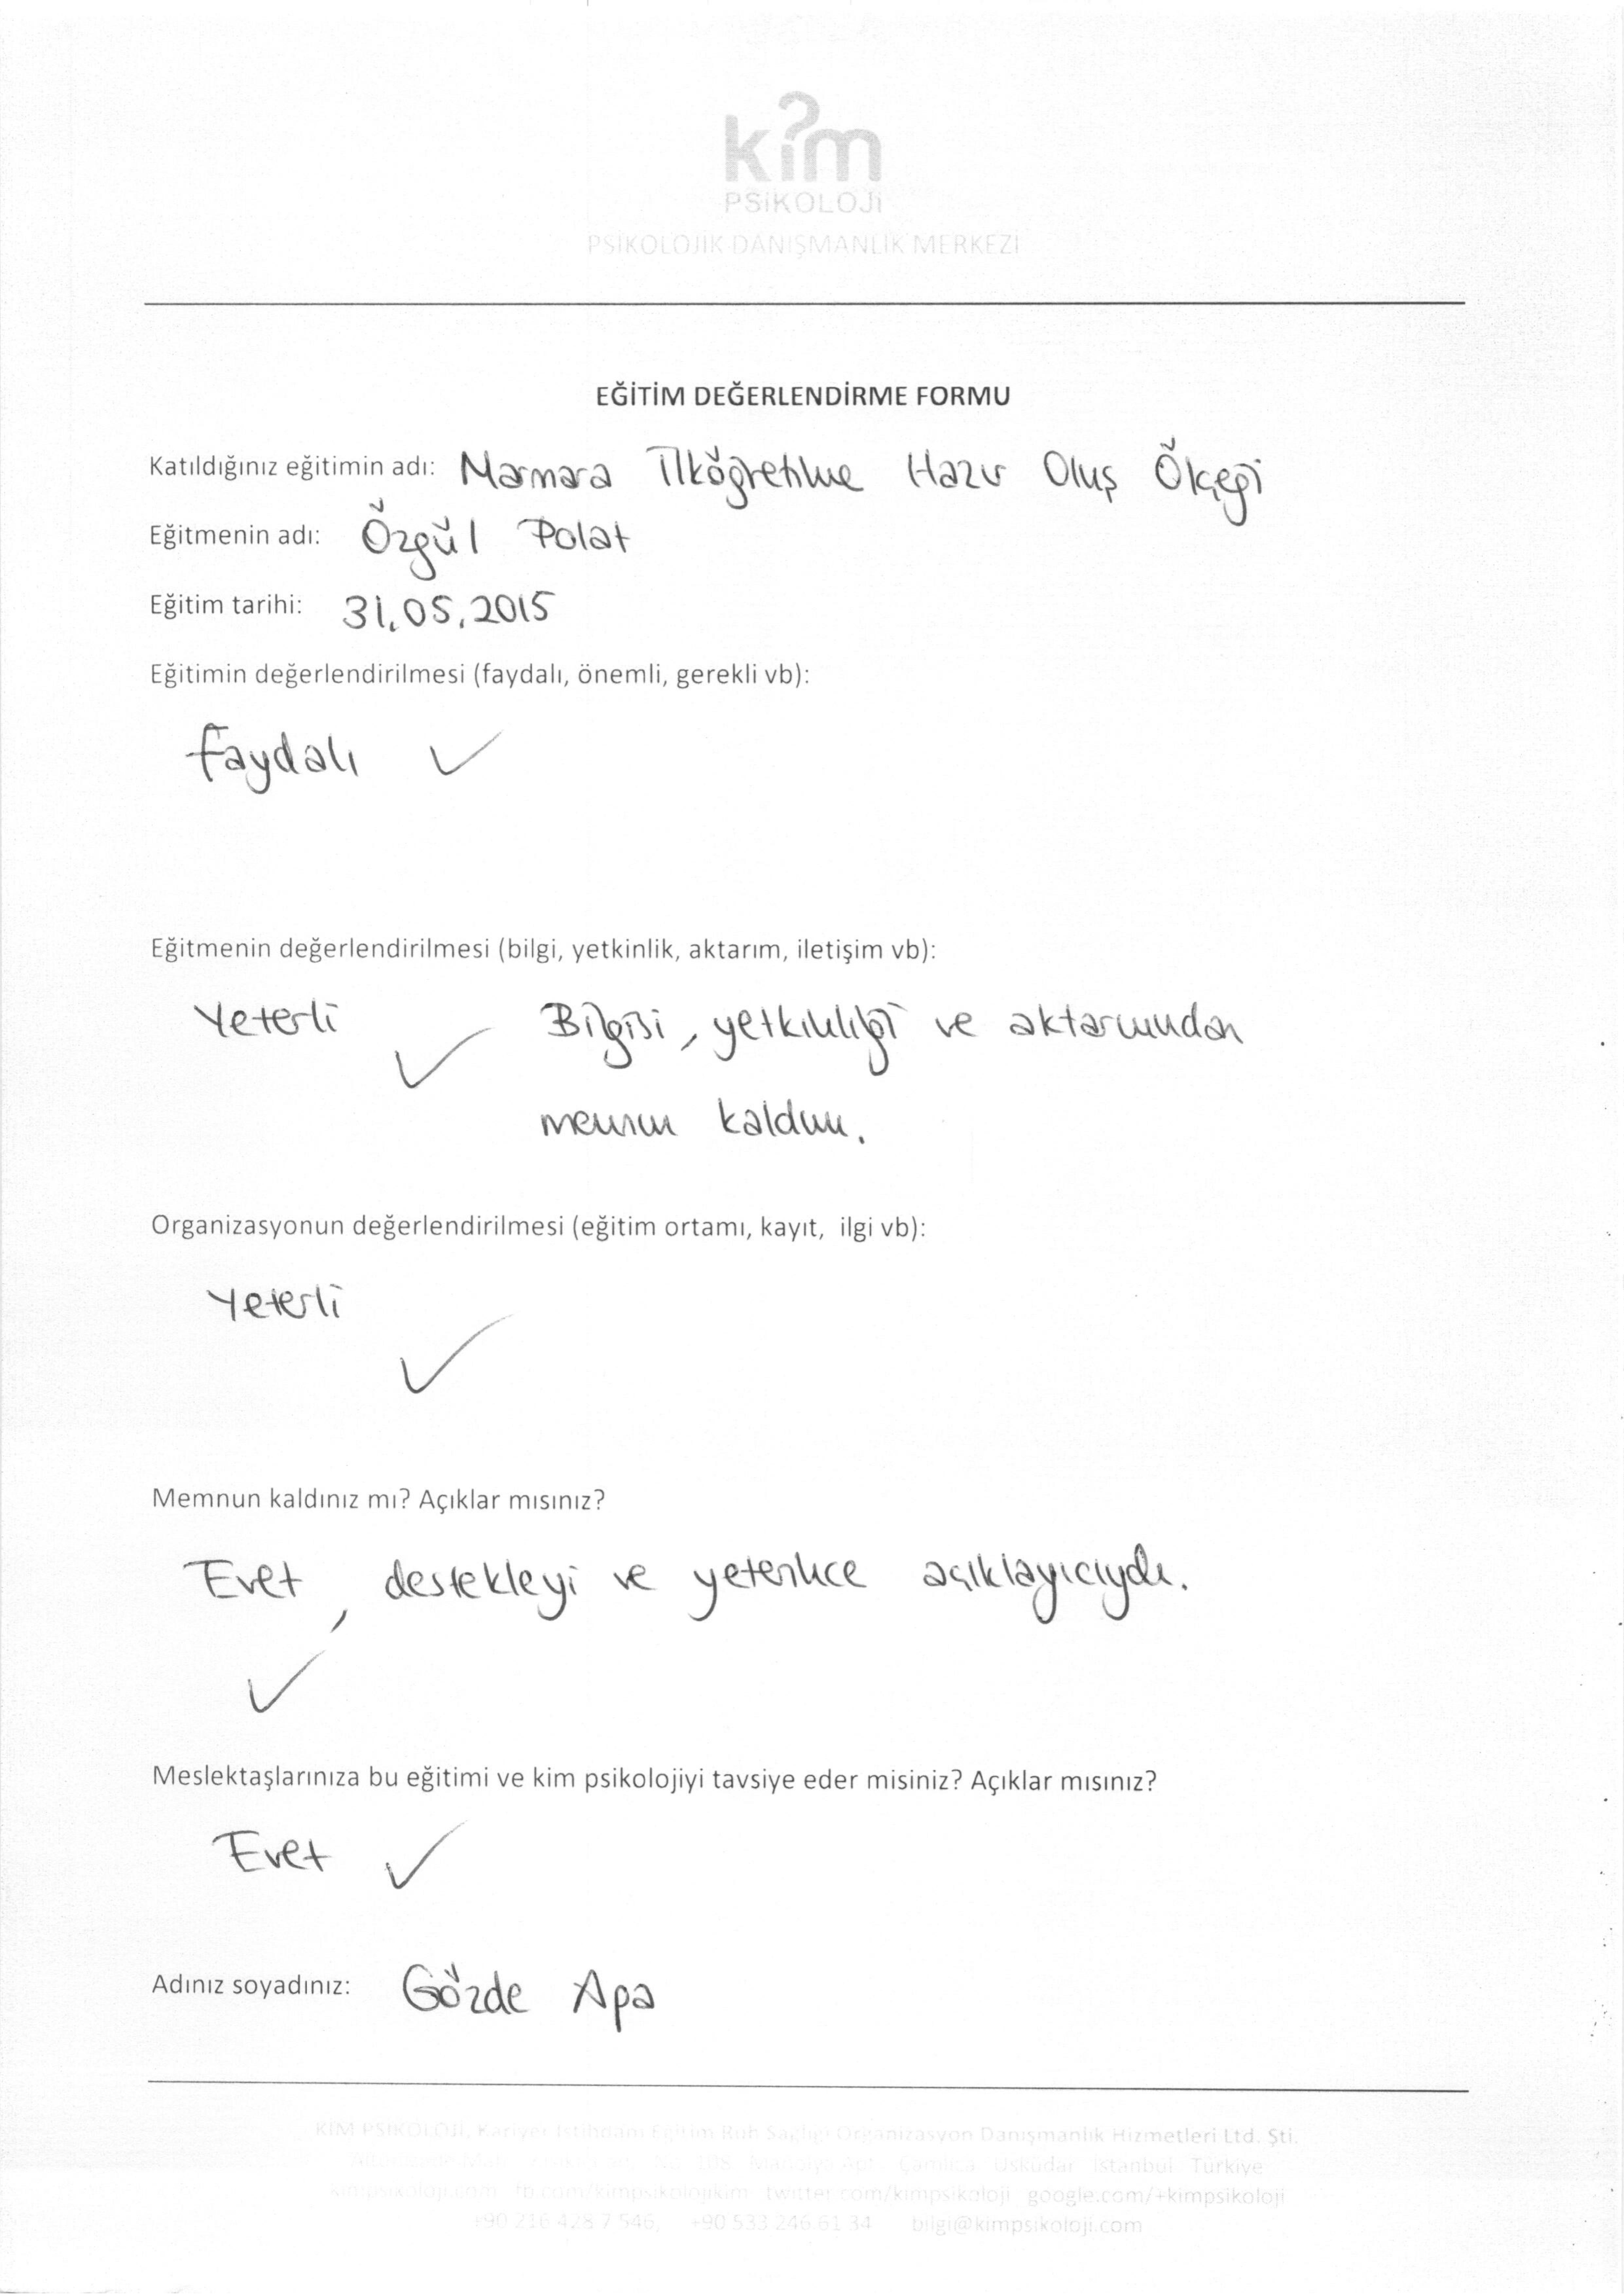 kim
PSİKOLOJİ
PSİKOLOJİK DANIŞMANLIK MERKEZİ
EĞİTİM DEĞERLENDİRME FORMU
Katıldığınız eğitimin adı: Marmara İlköğretime Hazır Oluş Ölçeği
Eğitmenin adı: Özgül Polat
Eğitim tarihi: 31.05.2015
Eğitimin değerlendirilmesi (faydalı, önemli, gerekli vb):
faydalı ✓
Eğitmenin değerlendirilmesi (bilgi, yetkinlik, aktarım, iletişim vb):
Yeterli ✓ Bilgisi, yetkinliği ve aktarımından
memnun kaldım.
Organizasyonun değerlendirilmesi (eğitim ortamı, kayıt, ilgi vb):
Yeterli
✓
Memnun kaldınız mı? Açıklar mısınız?
Evet, destekleyi ve yeterince açıklayıcıydı.
✓
Meslektaşlarınıza bu eğitimi ve kim psikolojiyi tavsiye eder misiniz? Açıklar mısınız?
Evet ✓
Adınız soyadınız: Gözde Apa
KİM PSİKOLOJİ, Kariyer İstihdam Eğitim Ruh Sağlığı Organizasyon Danışmanlık Hizmetleri Ltd. Şti.
No 108 Apt. Çamlıca Üsküdar İstanbul Türkiye
kimpsikoloji.com fb.com/kimpsikolojikim twitter.com/kimpsikoloji google.com/+kimpsikoloji
+90 216 428 7 546, +90 533 246 61 34 bilgi@kimpsikoloji.com